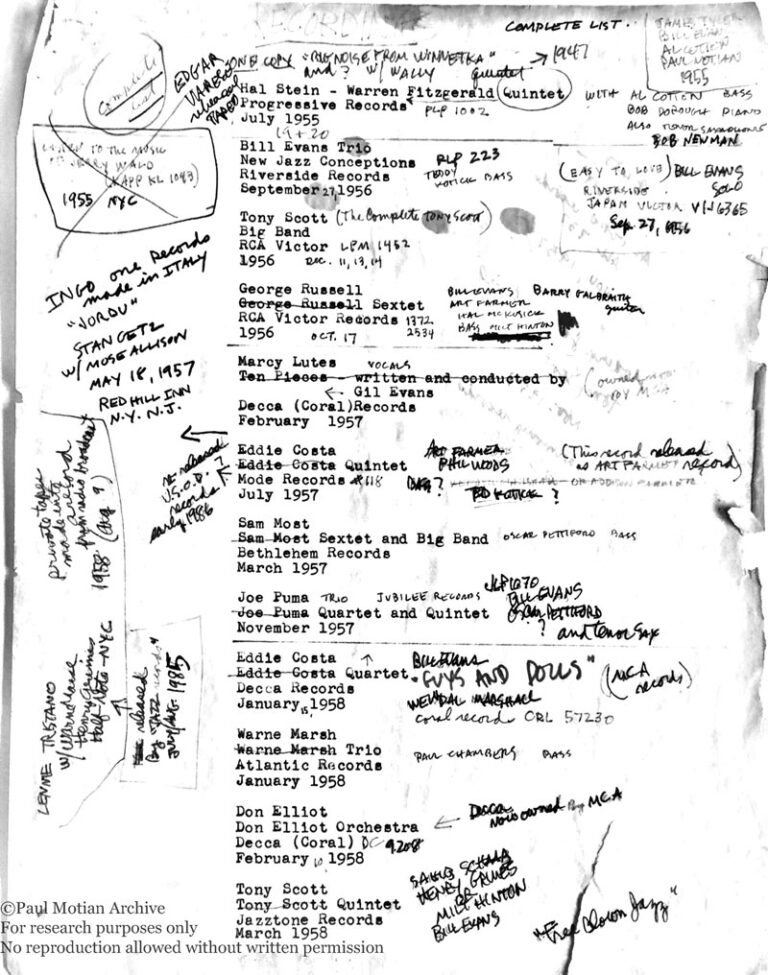 RECORDINGS
COMPLETE LIST.
Complete
List
EDGAR
VARESE
released
TAPED
ONE COPY "BIG NOISE FROM WINNETKA" → 1947
and ? w/ WALLY quintet
JAMES TYLER
BILL EVANS
AL COTTEN
PAUL MOTIAN
1955
Hal Stein - Warren Fitzgerald Quintet
Progressive Records PLP 1002
July 1955
19 + 20
WITH AL COTTEN BASS
BOB DOROUGH PIANO
ALSO TENOR SAXOPHONE
BOB NEWMAN
LISTEN TO THE MUSIC
OF JERRY WALD
(KAPP KL 1043)
1955 NYC
Bill Evans Trio
New Jazz Conceptions RLP 223
Riverside Records TEDDY KOTICK BASS
September 27, 1956
(EASY TO LOVE) BILL EVANS
RIVERSIDE SOLO
JAPAN VICTOR VIJ 6365
Sep. 27, 1956
Tony Scott (The Complete Tony Scott)
Big Band
RCA Victor LPM 1452
1956 DEC. 11, 13, 14
INGO one records
made in ITALY
"JORDU"
STAN GETZ
w/ MOSE ALLISON
MAY 18, 1957
RED HILL INN
N.Y. N.J.
George Russell
George Russell Sextet
RCA Victor Records 1372
1956 OCT. 17 2534
BILL EVANS BARRY GALBRAITH
ART FARMER guitar
HAL McKUSICK
BASS MILT HINTON
Marcy Lutes VOCALS
Ten Pieces - written and conducted by
← Gil Evans
Decca (Coral) Records
February 1957
(owned now
by MCA
Eddie Costa
Eddie Costa Quintet
Mode Records #118
July 1957
ART FARMER
PHIL WOODS
BASS?
TEDDY KOTICK ?
OR ADDISON FARMER
(This record released
as ART FARMER record)
re-released
V.S.O.P. ?
records
early 1986
Sam Most
Sam Most Sextet and Big Band OSCAR PETTIFORD BASS
Bethlehem Records
March 1957
Joe Puma TRIO JUBILEE RECORDS JLP 1070
Joe Puma Quartet and Quintet
November 1957
BILL EVANS
OSCAR PETTIFORD
? and tenor sax
private tapes
made into
a record
from radio broadcast
1958 (Aug. 9)
LENNIE TRISTANO
w/
Henry Grimes
Half-Note - NYC
Eddie Costa ↑
Eddie Costa Quartet
Decca Records
January 15, 1958
BILL EVANS
"GUYS AND DOLLS"
(MCA
records)
WENDAL MARSHALL
coral record CRL 57230
released
by "JAZZ
July/Aug. 1985
Warne Marsh
Warne Marsh Trio
Atlantic Records
January 1958
PAUL CHAMBERS BASS
Don Elliot
Don Elliot Orchestra
Decca (Coral) DC 9208
February 10 1958
← Decca
now owned by MCA
Tony Scott
Tony Scott Quintet
Jazztone Records
March 1958
HENRY GRIMES
OR
MILT HINTON
BILL EVANS
"Free Blown Jazz"
©Paul Motian Archive
For research purposes only
No reproduction allowed without written permission